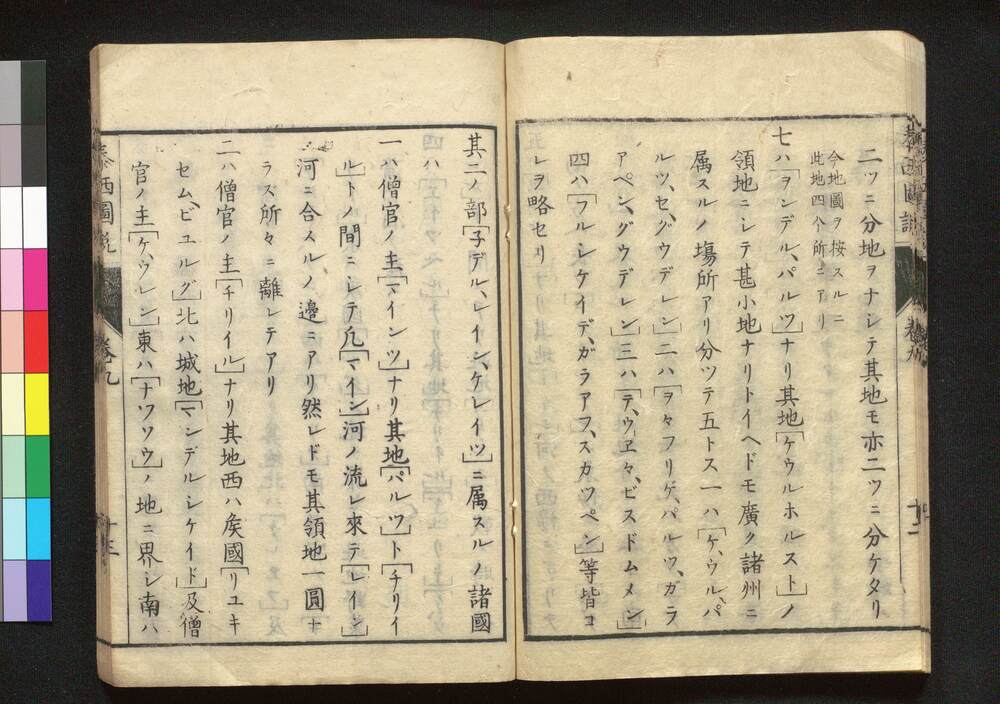 二ツニ分地ヲナシテ其地モ亦二ツニ分ケタリ
今地圖ヲ按スルニ
此地四个所ニアリ
七ハ[ヲンデル、パルツ]ナリ其地[ケウルホルスト]ノ
領地ニシテ甚小地ナリトイヘドモ廣ク諸州ニ
属スルノ塲所アリ分ツテ五トス一ハ[ケ、ウル、パ
ルツ、セ、グウデレン]二ハ[ヲヽフリゲ、パルツ、ガラ
アペン、グウデレン]三ハ[テ、ウヱヽ、ビスドムメン]
四ハ[フルシケイデ、ガラアフ、スカツペン]等皆コ
レヲ略セリ
泰西圖説
卷九
十二
其二ノ部[子デル、レイン、ケレイツ]ニ属スルノ諸國
一ハ僧官ノ主[マインツ]ナリ其地[パルツ]ト[チリイ
ル]トノ間ニシテ凡[マイン]河ノ流レ來テ[レイン]
河ニ合スルノ邊ニアリ然レドモ其領地一圓ナ
ラズ所々ニ離レテアリ
二ハ僧官ノ主[チリイル]ナリ其地西ハ矦國[リユキ
セム、ビユルグ]北ハ城地[マンデルシケイド]及僧
官ノ主[ケ、ウレン]東ハ[ナツソウ]ノ地ニ界シ南ハ
泰西圖説
卷九
十三